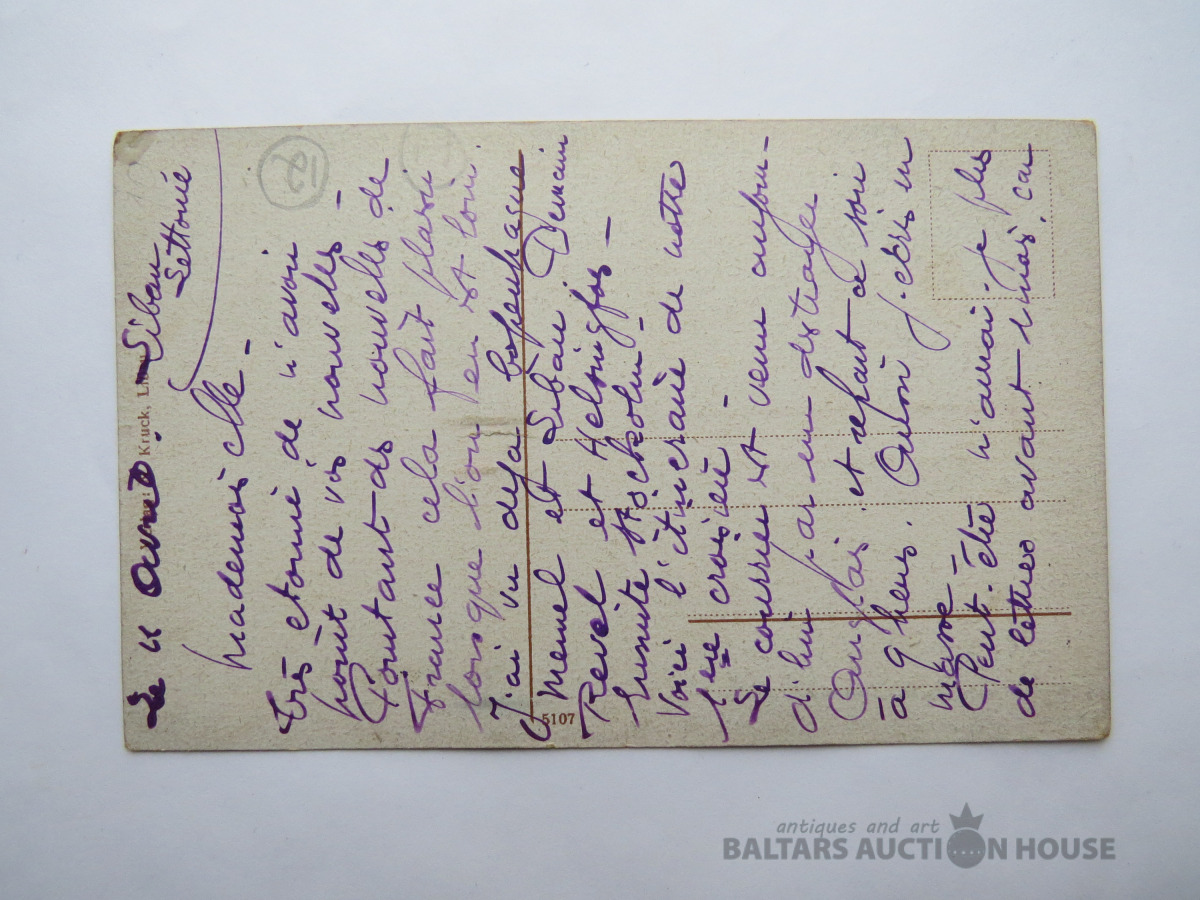 Le 11 Avril. Libau
Lettonie
Mademoiselle -
Très étonné de n'avoir
point de vos nouvelles -
Pourtant des nouvelles de
France cela fait plaisir
lorsque l'on en est loin.
J'ai vu déjà Copenhague
Memel et Libau Demain
Revel et Helsingfors -
Ensuite Stockholm -
Voici l'itinéraire de notre
1ère croisière -
Le courrier est venu aujour-
d'hui par un
Anglais et repart ce soir
à 9 heures. Aussi j'écris un
Peut-être n'aurai-je plus
de lettres avant 1 mois, car
Kruck, Li
5107
12
antiques and art
BALTARS AUCTION HOUSE